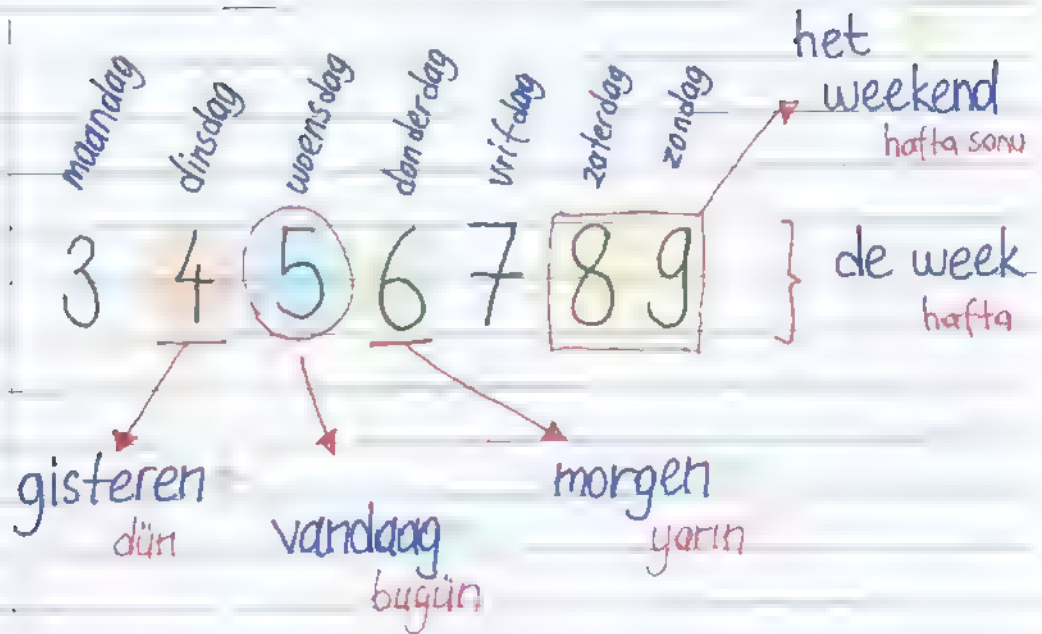 maandag dinsdag woensdag donderdag vrijdag zaterdag zondag
het
weekend
hafta sonu
3 4 5 6 7 8 9
de week
hafta
gisteren
dün
vandaag
bugün
morgen
yarın